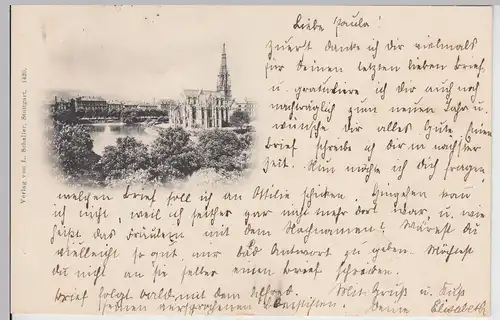 Verlag von L. Schaller, Stuttgart. 1420.
Liebe Paula!
zuerst danke ich dir vielmals
für deinen letzten lieben Brief
u. gratuliere ich dir auch noch
nachträglich zum neuen Jahr u.
wünsche dir alles Gute. Einen
Brief schreibe ich dir in nächster
Zeit. Nun möchte ich dich fragen,
welchen Brief soll ich an Ottilie schicken. Hingehen kann
ich nicht, weil ich seither gar nicht mehr dort war, u. wie
heißt das Fräulein mit dem Nachnamen? Wärest du
vielleicht so gut, mir bald Antwort zu geben. Möchtest
du nicht an sie selber einen Brief schreiben.
Brief folgt bald mit dem
seinen versprochenen Mit Gruß u. Kuß
Deine Elisabeth